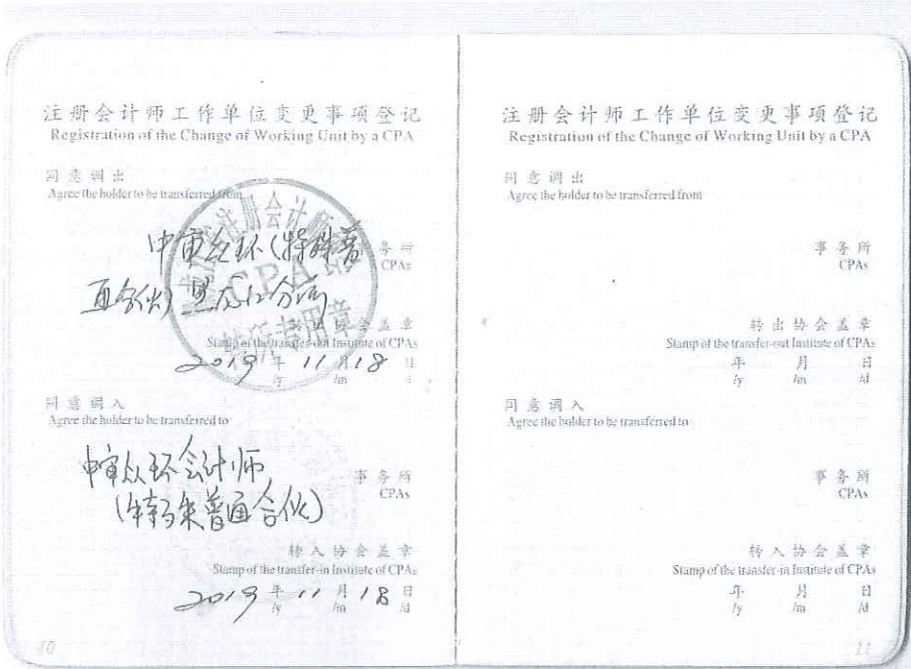 注册会计师工作单位变更事项登记
Registration of the Change of Working Unit by a CPA
同意调出
Agree the holder to be transferred from
中审众环(特殊普
事务所
CPAs
通合伙)黑龙江分所
转出协会盖章
Stamp of the transfer-out Institute of CPAs
2019年11月18日
/y /m /d
同意调入
Agree the holder to be transferred to
中审众环会计师
事务所
CPAs
(特殊普通合伙)
转入协会盖章
Stamp of the transfer-in Institute of CPAs
2019年11月18日
/y /m /d
10
注册会计师工作单位变更事项登记
Registration of the Change of Working Unit by a CPA
同意调出
Agree the holder to be transferred from
事务所
CPAs
转出协会盖章
Stamp of the transfer-out Institute of CPAs
年 月 日
/y /m /d
同意调入
Agree the holder to be transferred to
事务所
CPAs
转入协会盖章
Stamp of the transfer-in Institute of CPAs
年 月 日
/y /m /d
11
注册会计师
CPA
转所专用章